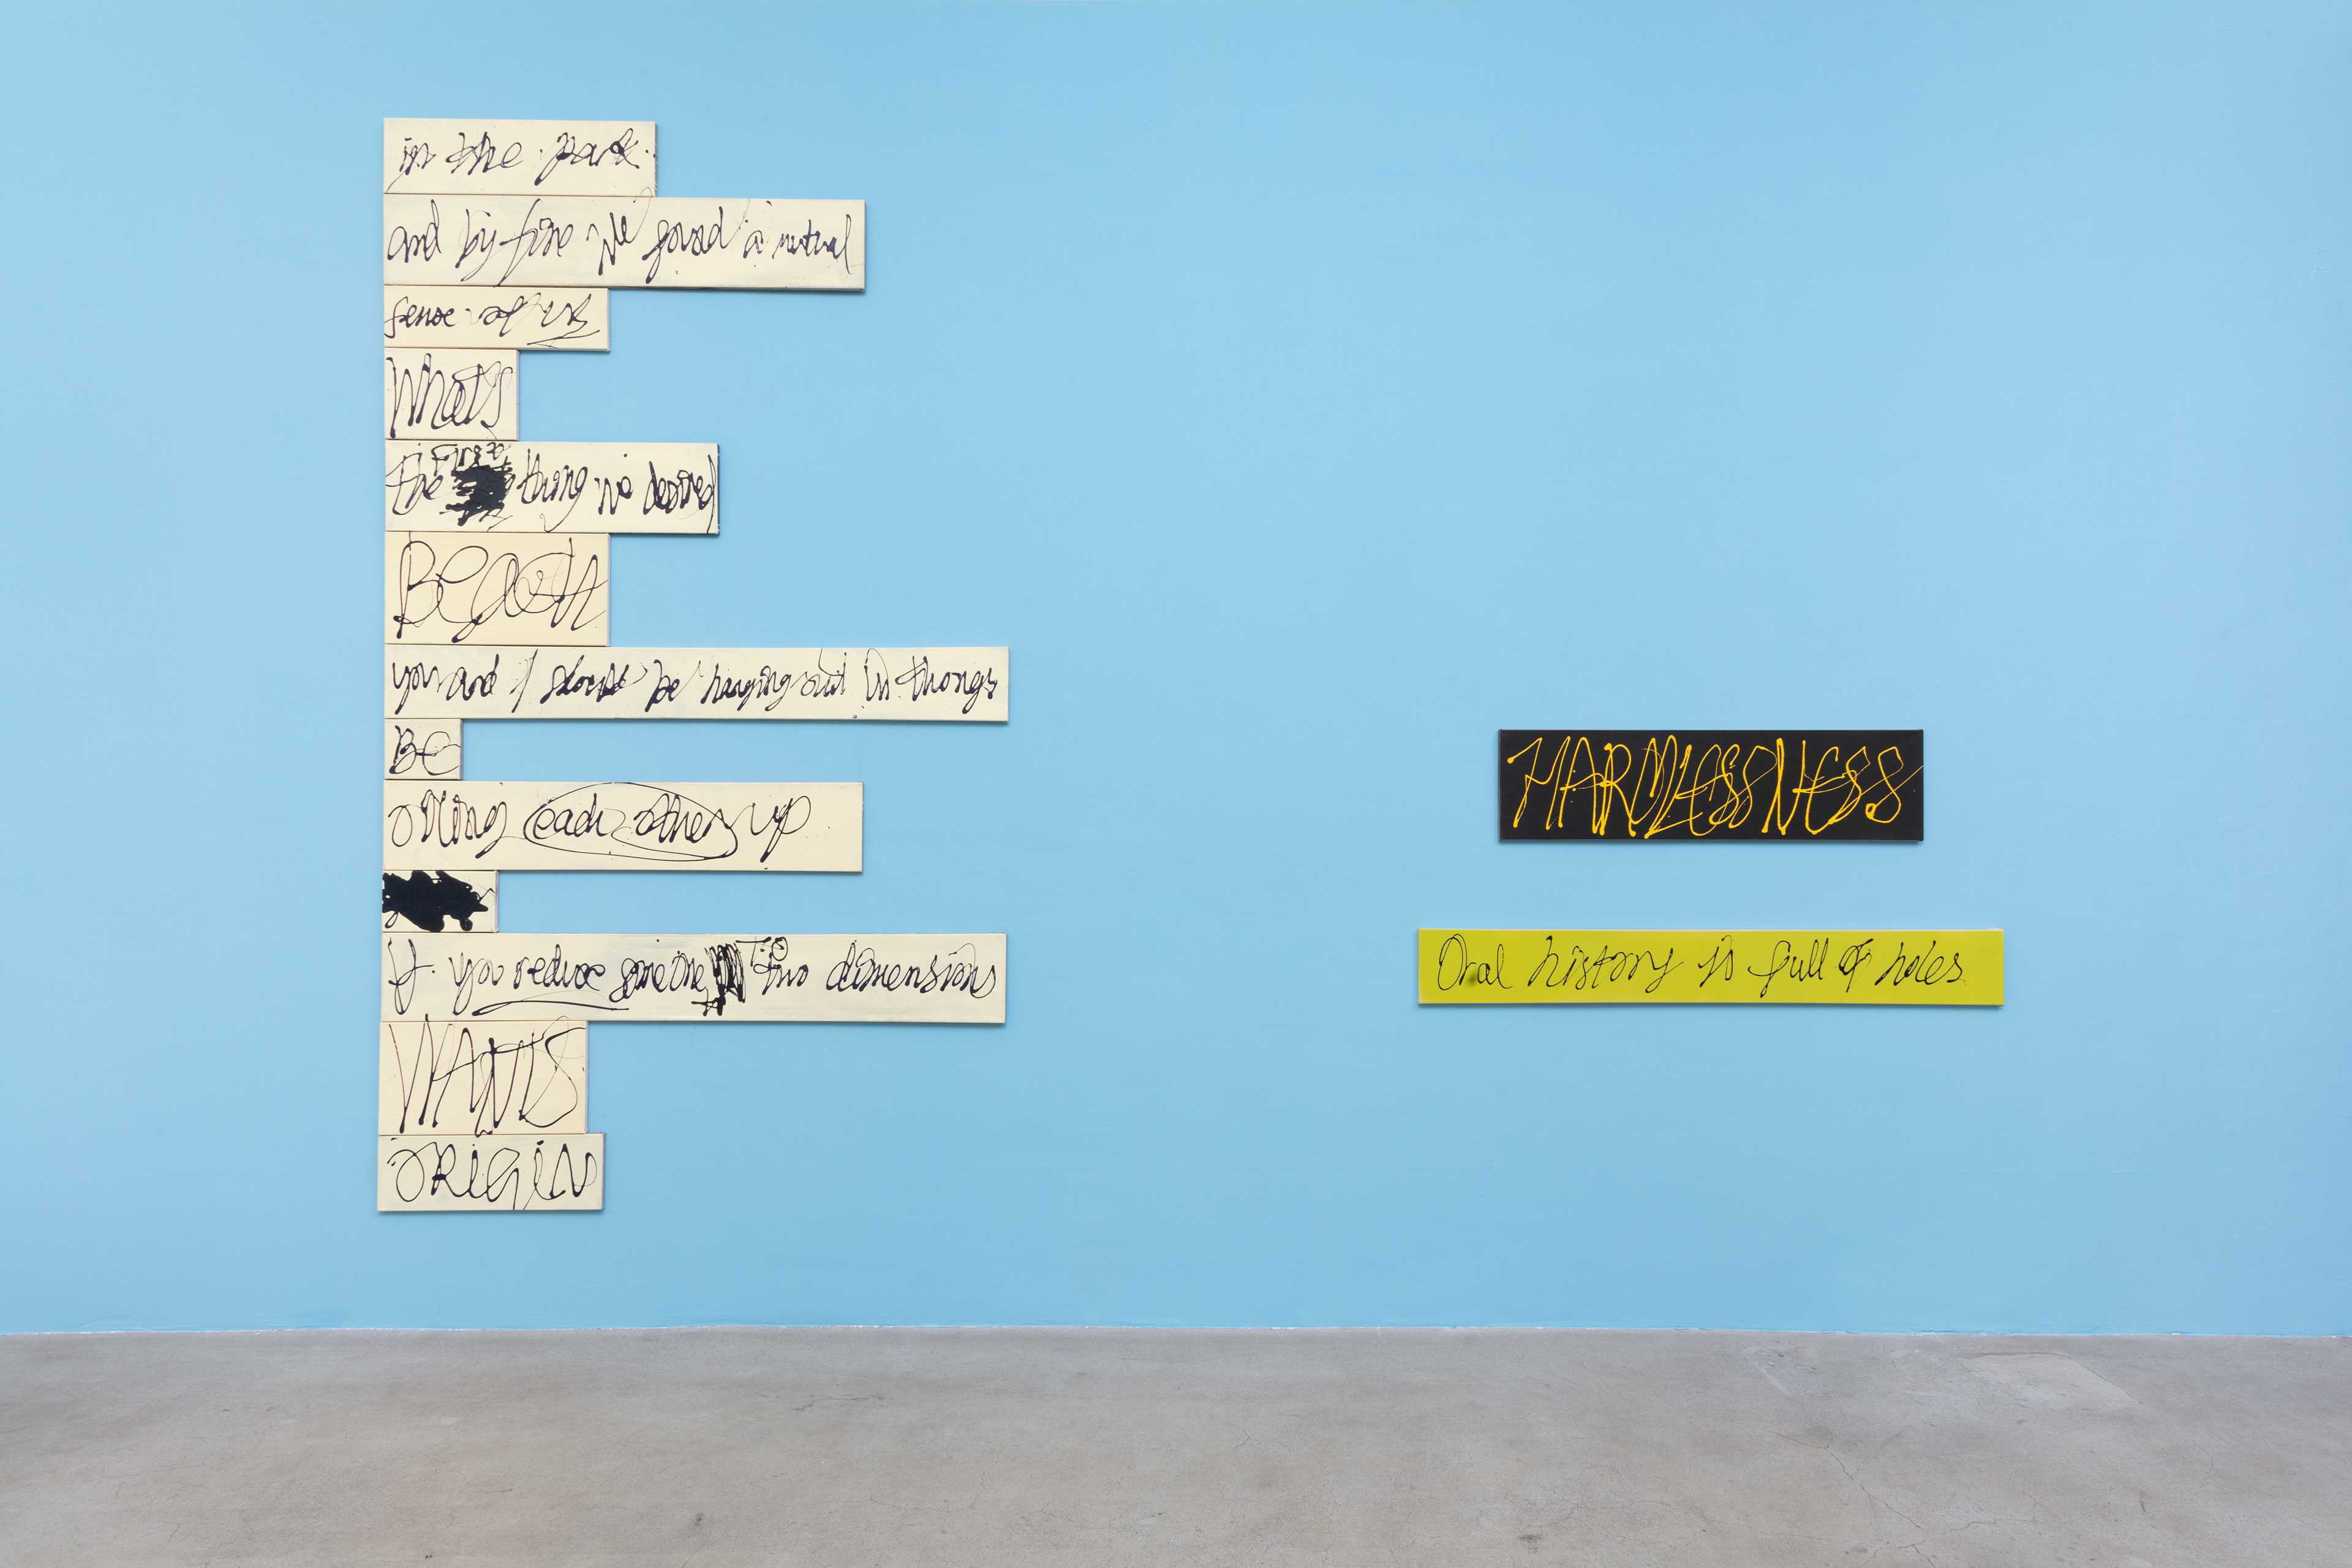 in the park
and by fire we found a mutual
sense of us
What's
the first thing we desired
BEACH
you and I should be hanging out in thongs
BE
oiling each other up
If you reduce someone to two dimensions
WANTS
ORIGIN
HARMLESSNESS
Oral history is full of holes